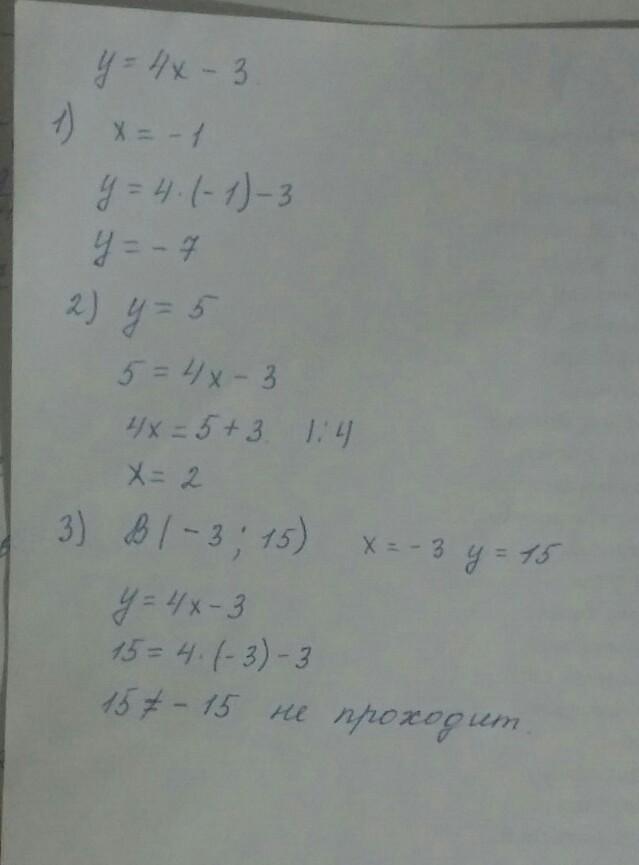 y = 4x - 3
1) x = -1
y = 4·(-1)-3
y = -7
2) y = 5
5 = 4x - 3
4x = 5+3 |:4
x = 2
3) B(-3; 15) x = -3 y = 15
y = 4x-3
15 = 4·(-3)-3
15 ≠ -15 не проходит.